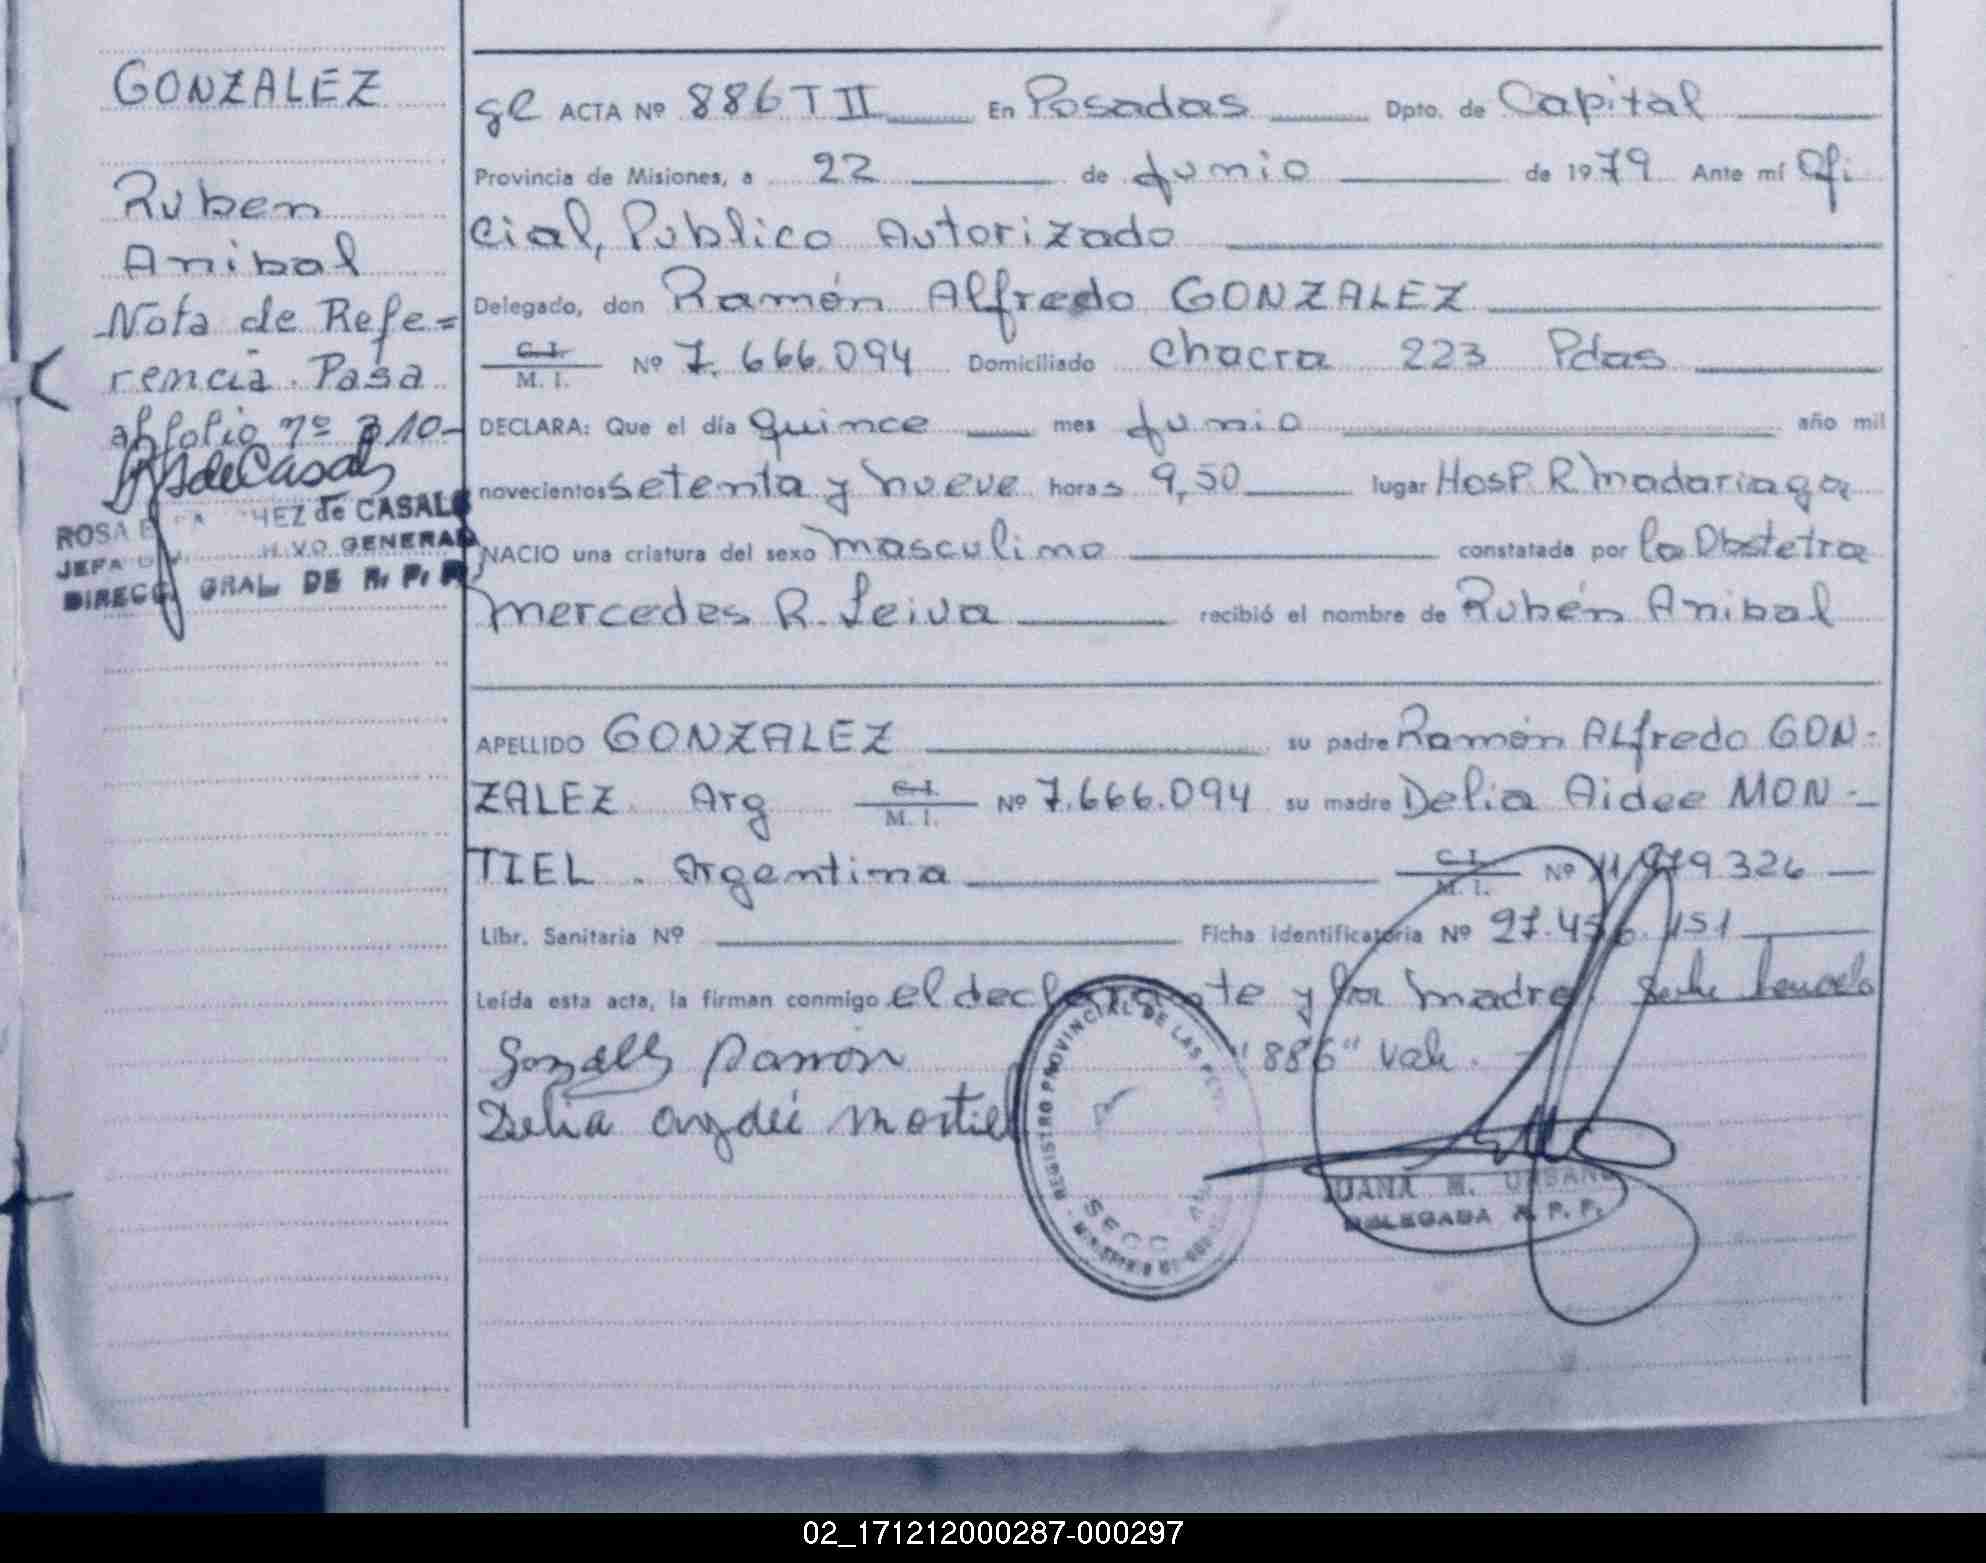 GONZALEZ
Ruben
Anibal
Nota de Refe=
rencia. Pasa
al folio nº 310-
ROSA de CASALS
JEFA GENERAL
DIRECC. GRAL. DE R. P. P.
ACTA Nº 886 T II En Posadas Dpto. de Capital
Provincia de Misiones, a 22 de Junio de 1979 Ante mí Ofi
cial, Publico Autorizado
Delegado, don Ramón Alfredo GONZALEZ
C.I. M. I. Nº 7.666.094 Domiciliado Chacra 223 Pdas
DECLARA: Que el día quince mes Junio año mil
novecientos setenta y nueve horas 9,50 lugar Hosp. R Madariaga
NACIO una criatura del sexo masculino constatada por la Obstetra
Mercedes R. Leiva recibió el nombre de Rubén Anibal
APELLIDO GONZALEZ su padre Ramón Alfredo GON-
ZALEZ Arg C.I. M. I. Nº 7.666.094 su madre Delia Aidee MON-
TIEL. Argentina C.I. M. I. Nº 11.979.326
Libr. Sanitaria Nº Ficha identificatoria Nº 27.456.151
Leída esta acta, la firman conmigo el declarante y la madre.
Ramon "886" Vale.
Delia Montiel
REGISTRO PROVINCIAL DE LAS
SECC
JUANA M. URBANO
DELEGADA R. P. P.
02_171212000287-000297